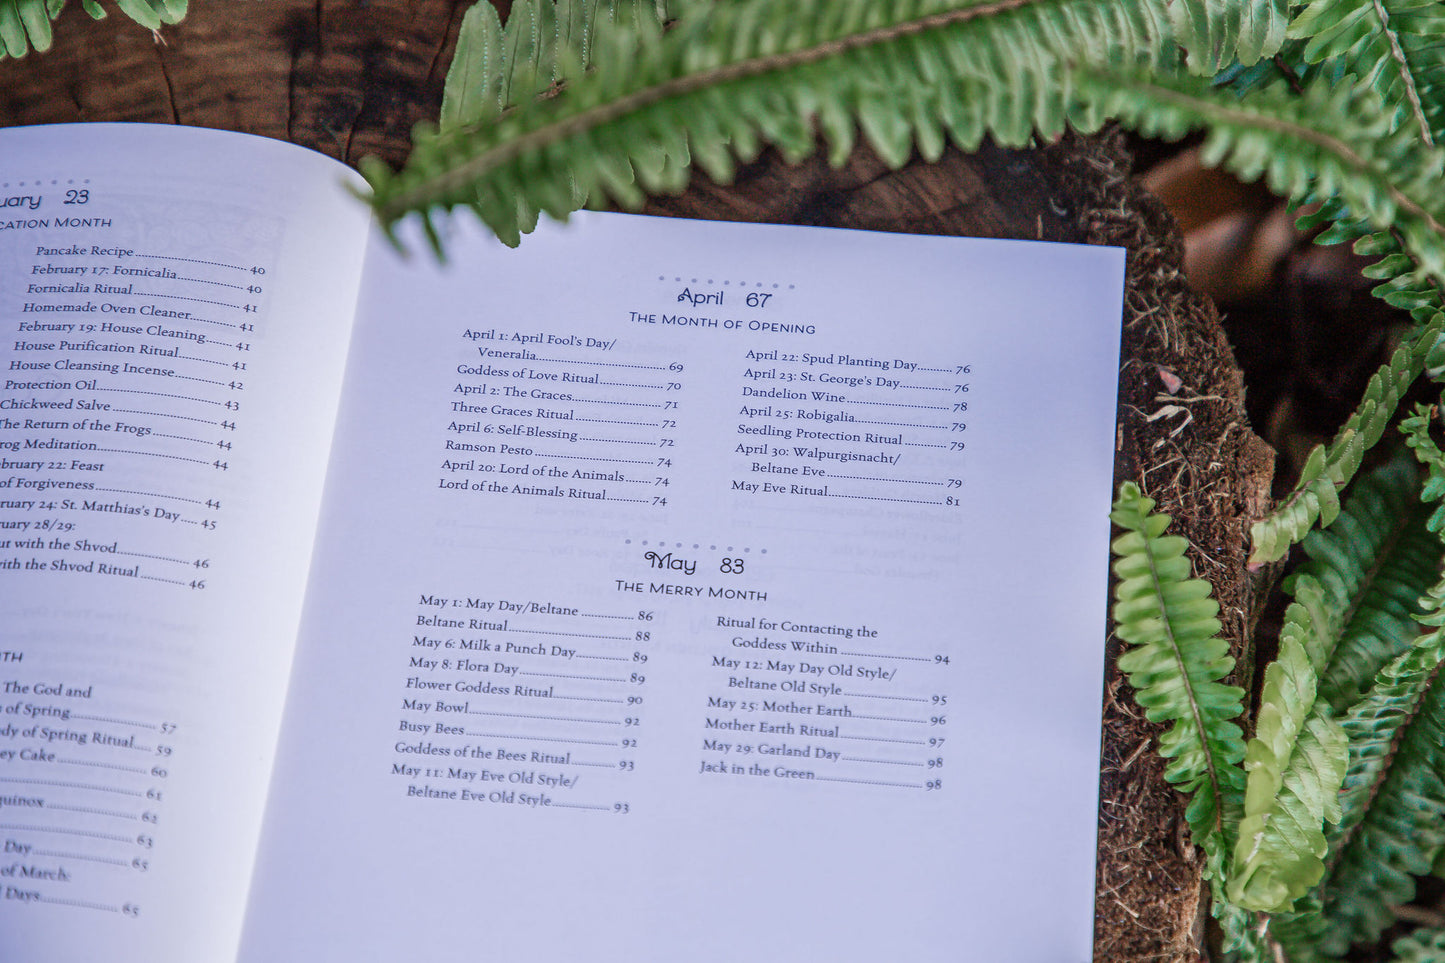 23
CATION MONTH
Pancake Recipe 40
February 17: Fornicalia 40
Fornicalia Ritual 41
Homemade Oven Cleaner 41
February 19: House Cleaning 41
House Purification Ritual 41
House Cleansing Incense 42
Protection Oil 43
Chickweed Salve 44
The Return of the Frogs 44
Meditation 44
22: Feast
of Forgiveness 44
24: St. Matthias's Day 45
28/29:
with the Shvod 46
with the Shvod Ritual 46
The God and
of Spring 57
of Spring Ritual 59
Cake 60
61
62
63
Day 65
of March:
Days 65
April 67
THE MONTH OF OPENING
April 1: April Fool's Day/
Veneralia 69
Goddess of Love Ritual 70
April 2: The Graces 71
Three Graces Ritual 72
April 6: Self-Blessing 72
Ramson Pesto 74
April 20: Lord of the Animals 74
Lord of the Animals Ritual 74
April 22: Spud Planting Day 76
April 23: St. George's Day 76
Dandelion Wine 78
April 25: Robigalia 79
Seedling Protection Ritual 79
April 30: Walpurgisnacht/
Beltane Eve 79
May Eve Ritual 81
May 83
THE MERRY MONTH
May 1: May Day/Beltane 86
Beltane Ritual 88
May 6: Milk a Punch Day 89
May 8: Flora Day 89
Flower Goddess Ritual 90
May Bowl 92
Busy Bees 92
Goddess of the Bees Ritual 93
May 11: May Eve Old Style/
Beltane Eve Old Style 93
Ritual for Contacting the
Goddess Within 94
May 12: May Day Old Style/
Beltane Old Style 95
May 25: Mother Earth 96
Mother Earth Ritual 97
May 29: Garland Day 98
Jack in the Green 98